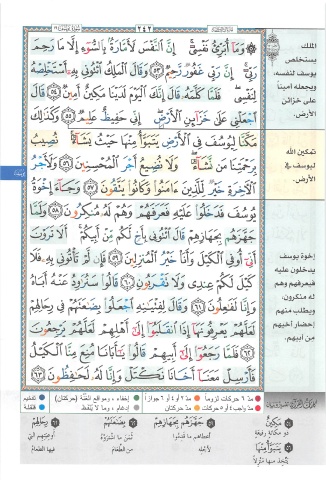 سورة يوسف ١٢
٢٤٢
وَمَا أُبَرِّئُ نَفْسِي إِنَّ النَّفْسَ لَأَمَّارَةٌ بِالسُّوءِ إِلَّا مَا رَحِمَ
رَبِّي إِنَّ رَبِّي غَفُورٌ رَحِيمٌ ٥٣ وَقَالَ الْمَلِكُ ائْتُونِي بِهِ أَسْتَخْلِصْهُ
لِنَفْسِي فَلَمَّا كَلَّمَهُ قَالَ إِنَّكَ الْيَوْمَ لَدَيْنَا مَكِينٌ أَمِينٌ ٥٤ قَالَ
اجْعَلْنِي عَلَى خَزَائِنِ الْأَرْضِ إِنِّي حَفِيظٌ عَلِيمٌ ٥٥ وَكَذَلِكَ
مَكَّنَّا لِيُوسُفَ فِي الْأَرْضِ يَتَبَوَّأُ مِنْهَا حَيْثُ يَشَاءُ نُصِيبُ
بِرَحْمَتِنَا مَنْ نَشَاءُ وَلَا نُضِيعُ أَجْرَ الْمُحْسِنِينَ ٥٦ وَلَأَجْرُ
الْآخِرَةِ خَيْرٌ لِلَّذِينَ ءَامَنُوا وَكَانُوا يَتَّقُونَ ٥٧ وَجَاءَ إِخْوَةُ
يُوسُفَ فَدَخَلُوا عَلَيْهِ فَعَرَفَهُمْ وَهُمْ لَهُ مُنْكِرُونَ ٥٨ وَلَمَّا
جَهَّزَهُمْ بِجَهَازِهِمْ قَالَ ائْتُونِي بِأَخٍ لَكُمْ مِنْ أَبِيكُمْ أَلَا تَرَوْنَ
أَنِّي أُوفِي الْكَيْلَ وَأَنَا خَيْرُ الْمُنْزِلِينَ ٥٩ فَإِنْ لَمْ تَأْتُونِي بِهِ فَلَا
كَيْلَ لَكُمْ عِنْدِي وَلَا تَقْرَبُونِ ٦٠ قَالُوا سَنُرَاوِدُ عَنْهُ أَبَاهُ
وَإِنَّا لَفَاعِلُونَ ٦١ وَقَالَ لِفِتْيَانِهِ اجْعَلُوا بِضَاعَتَهُمْ فِي رِحَالِهِمْ
لَعَلَّهُمْ يَعْرِفُونَهَا إِذَا انْقَلَبُوا إِلَى أَهْلِهِمْ لَعَلَّهُمْ يَرْجِعُونَ
٦٢ فَلَمَّا رَجَعُوا إِلَى أَبِيهِمْ قَالُوا يَا أَبَانَا مُنِعَ مِنَّا الْكَيْلُ
فَأَرْسِلْ مَعَنَا أَخَانَا نَكْتَلْ وَإِنَّا لَهُ لَحَافِظُونَ ٦٣
الملك
يستخلص
يوسف لنفسه،
ويجعله أميناً
على خزائن
الأرض.
تمكين الله
ليوسف في
الأرض.
إخوة يوسف
يدخلون عليه
فيعرفهم وهم
له منكرون،
ويطلب منهم
إحضار أخيهم
من أبيهم.
مدّ ٦ حركات لزوماً
مدّ ٢ أو ٤ أو ٦ جوازاً
إخفاء، ومواقع الغنّة (حركتان)
تفخيم
مدّ واجب ٤ أو ٥ حركات
مدّ حركتان
إدغام، وما لا يُلفظ
قلقلة
مَكِينٌ
ذو مكانة رفيعة
يَتَبَوَّأُ مِنْهَا
يتّخذ منها منزلاً
جَهَّزَهُمْ بِجَهَازِهِمْ
أعطاهم ما قدموا
لأجله
بِضَاعَتَهُمْ
ثمن ما اشتروه
من الطعام
رِحَالِهِمْ
أوعيتهم التي
فيها الطعام